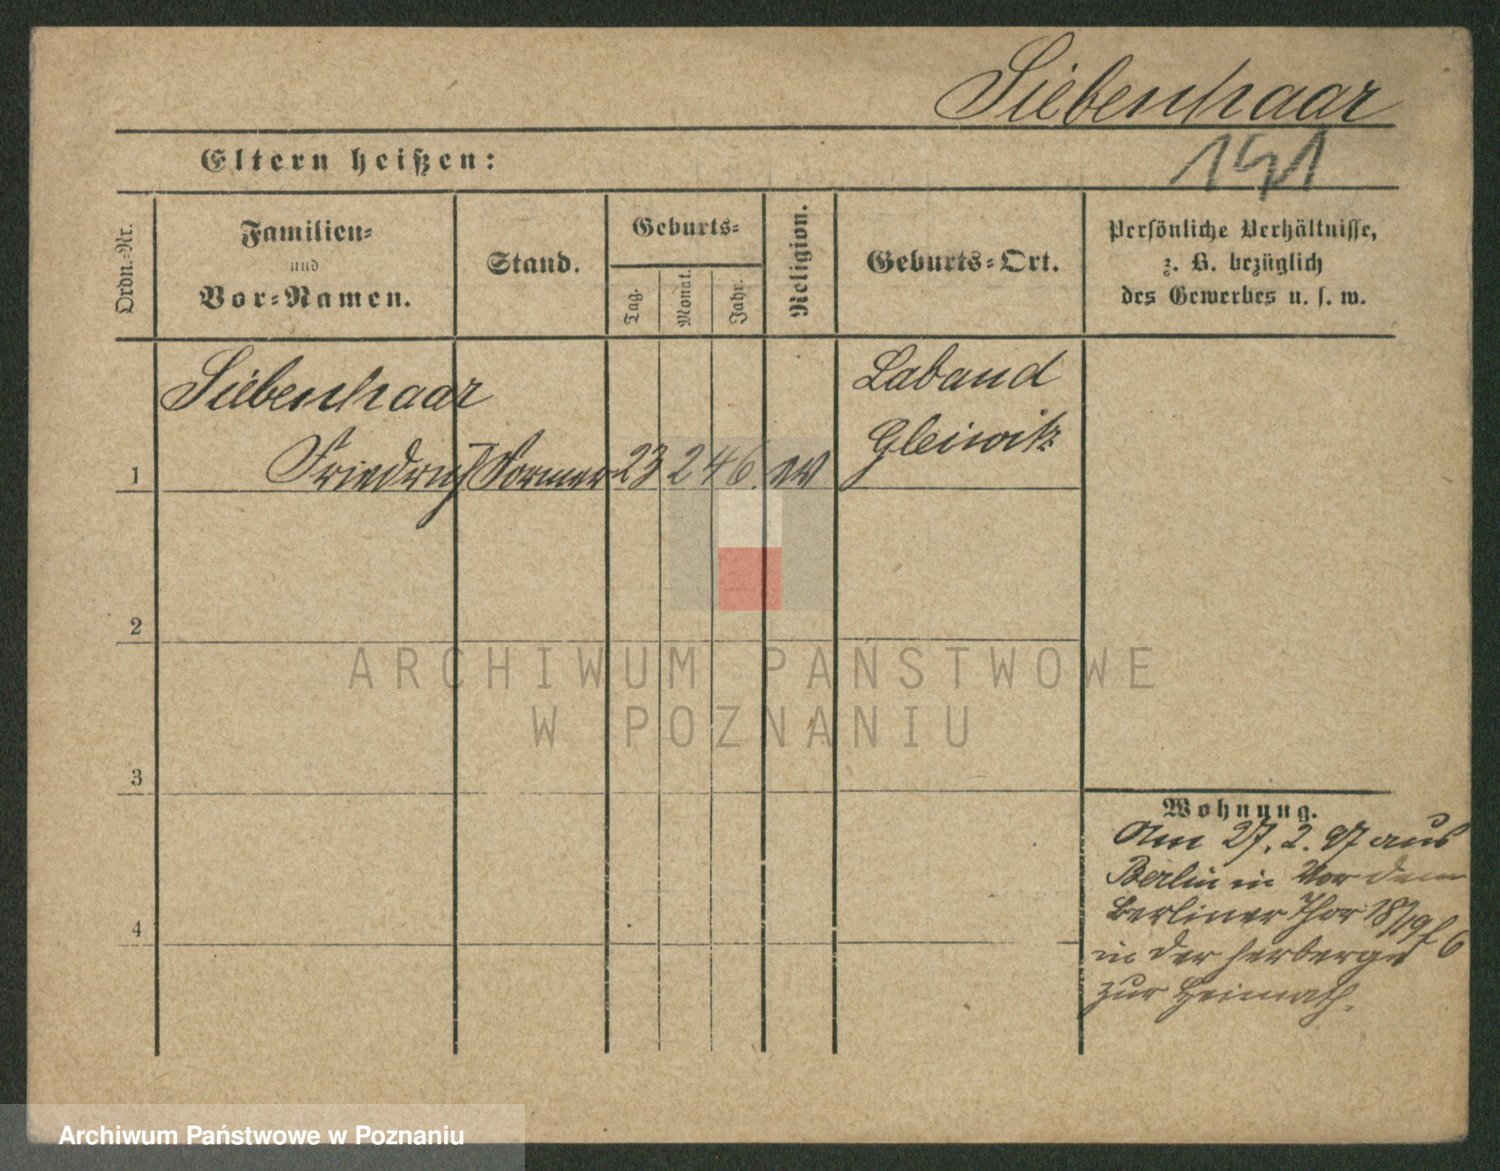 Siebenhaar
Eltern heißen:
191
Ordn.-Nr.
Familien-
und
Vor-Namen.
Stand.
Geburts-
Tag.
Monat.
Jahr.
Religion.
Geburts-Ort.
Persönliche Verhältnisse,
z. B. bezüglich
des Gewerbes u. s. w.
Siebenhaar
Laband
Gleiwitz
1 Friedrich Former 23 2 46. ev
2
ARCHIWUM PAŃSTWOWE
W POZNANIU
3
Wohnung.
Am 27. 2. 97 aus
Berlin in Vor dem
Berliner Thor 18/19
4
in der Herberge
zur Heimath.
Archiwum Państwowe w Poznaniu